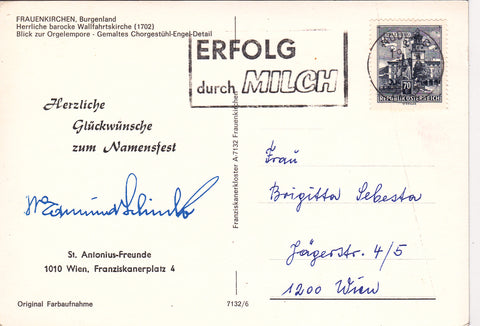 FRAUENKIRCHEN, Burgenland
Herrliche barocke Wallfahrtskirche (1702)
Blick zur Orgelempore - Gemaltes Chorgestühl-Engel-Detail
ERFOLG
durch MILCH
70
REPUBLIK ÖSTERREICH
Herzliche
Glückwünsche
zum Namensfest
St. Antonius-Freunde
1010 Wien, Franziskanerplatz 4
Original Farbaufnahme
7132/6
Franziskanerkloster A-7132 Frauenkirchen
Frau
Brigitta Sebesta
Jägerstr. 4/5
1200 Wien